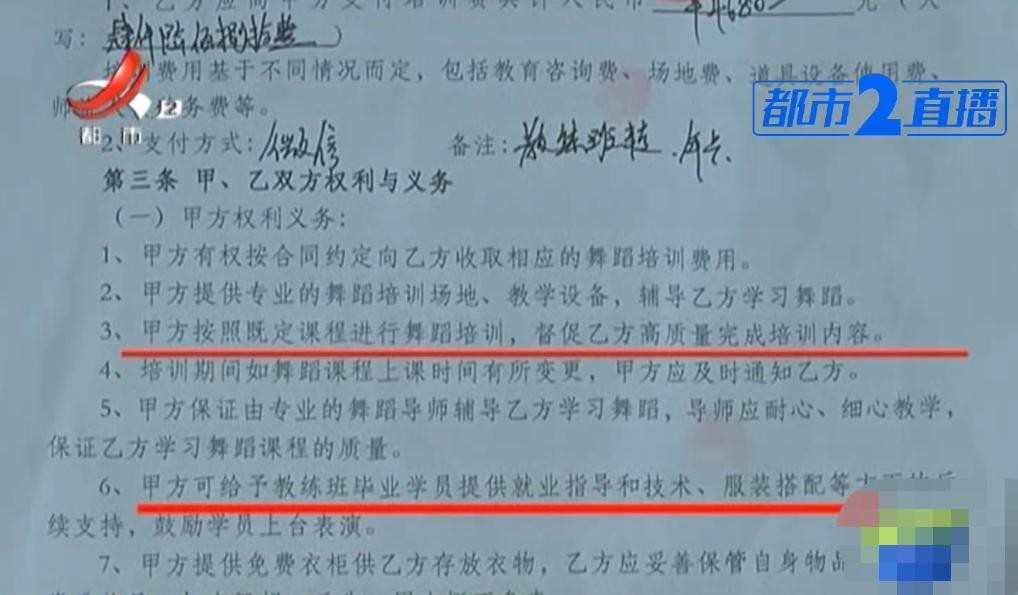 1、乙方应向甲方支付培训费共计人民币 元（大
写：肆仟陆佰捌拾 ）
培训费用基于不同情况而定，包括教育咨询费、场地费、道具设备使用费、
务费等。
都市2直播
都市
2、支付方式：微信 备注：教练班 年卡
第三条 甲、乙双方权利与义务
（一）甲方权利义务：
1、甲方有权按合同约定向乙方收取相应的舞蹈培训费用。
2、甲方提供专业的舞蹈培训场地、教学设备，辅导乙方学习舞蹈。
3、甲方按照既定课程进行舞蹈培训，督促乙方高质量完成培训内容。
4、培训期间如舞蹈课程上课时间有所变更，甲方应及时通知乙方。
5、甲方保证由专业的舞蹈导师辅导乙方学习舞蹈，导师应耐心、细心教学，
保证乙方学习舞蹈课程的质量。
6、甲方可给予教练班毕业学员提供就业指导和技术、服装搭配等
续支持，鼓励学员上台表演。
7、甲方提供免费衣柜供乙方存放衣物，乙方应妥善保管自身物品